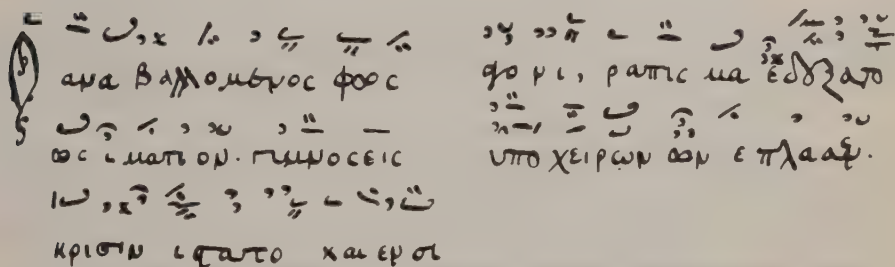 Ο ανα βαλλομενος φως
ως ιματιον. γιμνος εις
κρισιν ιστατο και εν σι
αγο νι, ραπις μα εδεξατο
υπο χειρων ων ε πλασεν.